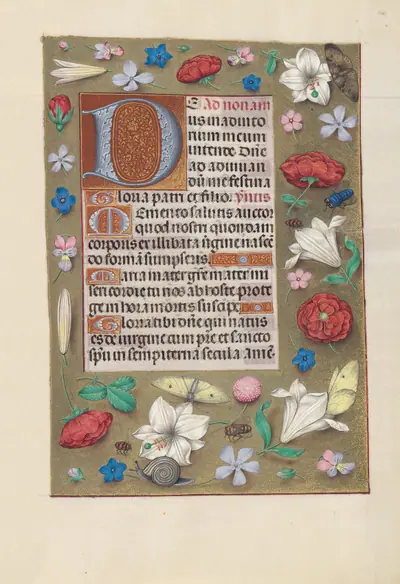 DE Ad nonam
us in adiuto
rium meum
intende Dñe
ad adiuuan
dũ me festina
Gloria patri et filio. ymnus
Memento salutis auctor
quod nostri quondam
corporis ex illibata v̄gine nascē
do formã sumpseris
Maria mater grãe mater mi
sericordie tu nos ab hoste prote
ge in hora mortis suscipe
Gloria tibi dñe qui natus
es de virgine cum p̃re et sancto
sp̃u in sempiterna secula amẽ